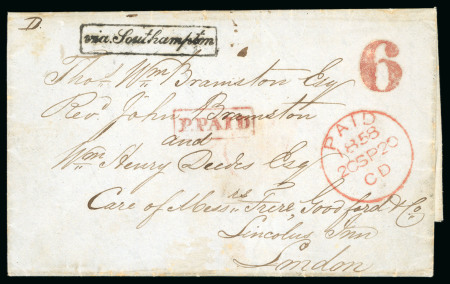 D.
via Southampton
6
Thos. Wm. Bramston Esq
Revd. John Bramston
P.PAID
and
Wm. Henry Deedes Esq
PAID
1858
20SP20
CD
Care of Messrs. Frere, Goodford & Co
Lincolns Inn
London